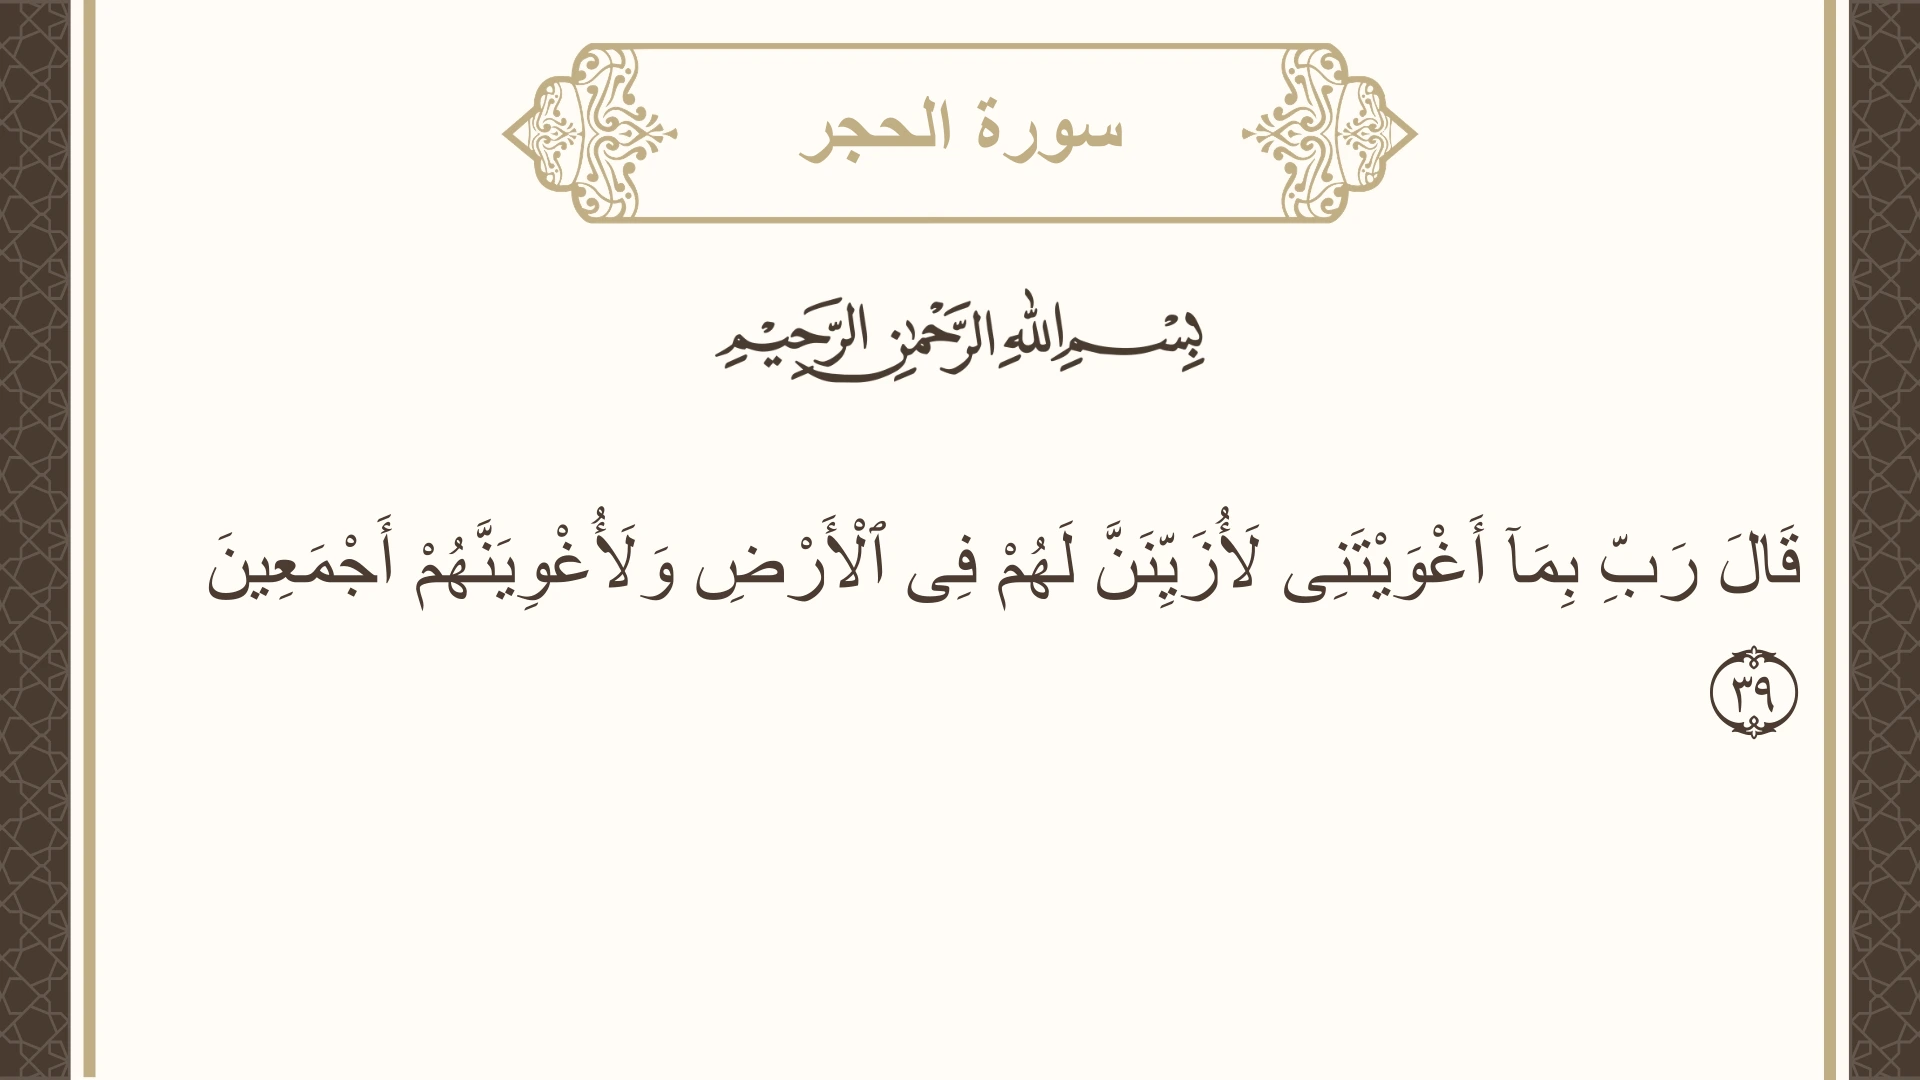 سورة الحجر
بِسْمِ اللهِ الرَّحْمٰنِ الرَّحِيْمِ
قَالَ رَبِّ بِمَآ أَغْوَيْتَنِى لَأُزَيِّنَنَّ لَهُمْ فِى ٱلْأَرْضِ وَلَأُغْوِيَنَّهُمْ أَجْمَعِينَ
٣٩